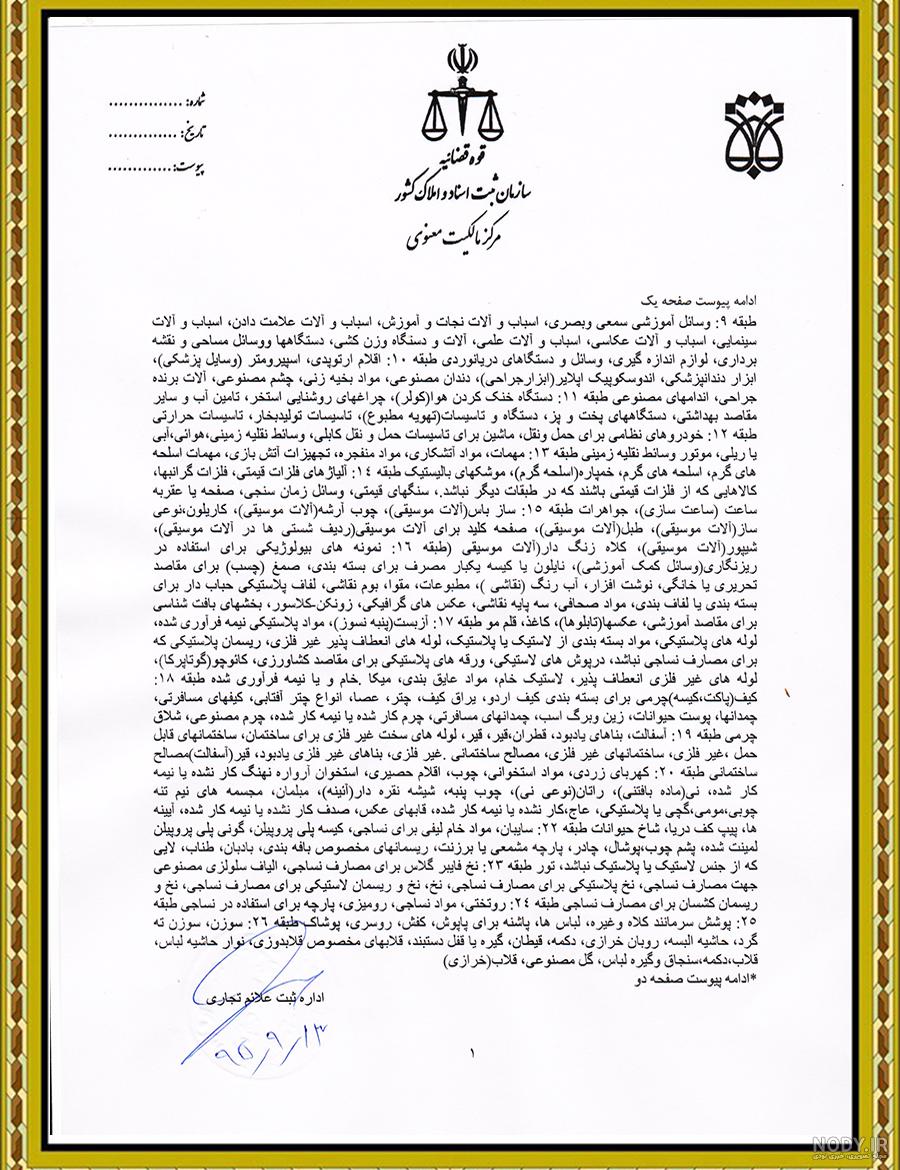 شماره: ...............
تاریخ: ..............
پیوست: .............
قوه قضائیه
سازمان ثبت اسناد و املاک کشور
مرکز مالکیت معنوی
ادامه پیوست صفحه یک
طبقه ۹: وسائل آموزشی سمعی وبصری، اسباب و آلات نجات و آموزش، اسباب و آلات علامت دادن، اسباب و آلات
سینمایی، اسباب و آلات عکاسی، اسباب و آلات علمی، آلات و دستگاه وزن کشی، دستگاهها ووسائل مساحی و نقشه
برداری، لوازم اندازه گیری، وسائل و دستگاهای دریانوردی طبقه ۱۰: اقلام ارتوپدی، اسپیرومتر (وسایل پزشکی)،
ابزار دندانپزشکی، اندوسکوپیک اپلایر(ابزارجراحی)، دندان مصنوعی، مواد بخیه زنی، چشم مصنوعی، آلات برنده
جراحی، اندامهای مصنوعی طبقه ۱۱: دستگاه خنک کردن هوا(کولر)، چراغهای روشنایی استخر، تامین آب و سایر
مقاصد بهداشتی، دستگاههای پخت و پز، دستگاه و تاسیسات(تهویه مطبوع)، تاسیسات تولیدبخار، تاسیسات حرارتی
طبقه ۱۲: خودروهای نظامی برای حمل ونقل، ماشین برای تاسیسات حمل و نقل کابلی، وسائط نقلیه زمینی،هوائی،آبی
یا ریلی، موتور وسائط نقلیه زمینی طبقه ۱۳: مهمات، مواد آتشکاری، مواد منفجره، تجهیزات آتش بازی، مهمات اسلحه
های گرم، اسلحه های گرم، خمپاره(اسلحه گرم)، موشکهای بالیستیک طبقه ۱۴: آلیاژهای فلزات قیمتی، فلزات گرانبها،
کالاهایی که از فلزات قیمتی باشند که در طبقات دیگر نباشد.، سنگهای قیمتی، وسائل زمان سنجی، صفحه یا عقربه
ساعت (ساعت سازی)، جواهرات طبقه ۱۵: ساز باس(آلات موسیقی)، چوب آرشه(آلات موسیقی)، کاریلون،نوعی
ساز(آلات موسیقی)، طبل(آلات موسیقی)، صفحه کلید برای آلات موسیقی(ردیف شستی ها در آلات موسیقی)،
شیپور(آلات موسیقی)، کلاه زنگ دار(آلات موسیقی (طبقه ۱۶: نمونه های بیولوژیکی برای استفاده در
ریزنگاری(وسائل کمک آموزشی)، نایلون یا کیسه یکبار مصرف برای بسته بندی، صمغ (چسب) برای مقاصد
تحریری یا خانگی، نوشت افزار، آب رنگ (نقاشی )، مطبوعات، مقوا، بوم نقاشی، لفاف پلاستیکی حباب دار برای
بسته بندی یا لفاف بندی، مواد صحافی، سه پایه نقاشی، عکس های گرافیکی، زونکن-کلاسور، بخشهای بافت شناسی
برای مقاصد آموزشی، عکسها(تابلوها)، کاغذ، قلم مو طبقه ۱۷: آزبست(پنبه نسوز)، مواد پلاستیکی نیمه فرآوری شده،
لوله های پلاستیکی، مواد بسته بندی از لاستیک یا پلاستیک، لوله های انعطاف پذیر غیر فلزی، ریسمان پلاستیکی که
برای مصارف نساجی نباشد، درپوش های لاستیکی، ورقه های پلاستیکی برای مقاصد کشاورزی، کانوچو(گوتاپرکا)،
لوله های غیر فلزی انعطاف پذیر، لاستیک خام، مواد عایق بندی، میکا .خام و یا نیمه فرآوری شده طبقه ۱۸:
کیف(پاکت،کیسه)چرمی برای بسته بندی کیف اردو، یراق کیف، چتر، عصا، انواع چتر آفتابی، کیفهای مسافرتی،
چمدانها، پوست حیوانات، زین وبرگ اسب، چمدانهای مسافرتی، چرم کار شده یا نیمه کار شده، چرم مصنوعی، شلاق
چرمی طبقه ۱۹: آسفالت، بناهای یادبود، قطران،قیر، قیر، لوله های سخت غیر فلزی برای ساختمان، ساختمانهای قابل
حمل ،غیر فلزی، ساختمانهای غیر فلزی، مصالح ساختمانی .غیر فلزی، بناهای غیر فلزی یادبود، قیر(آسفالت)مصالح
ساختمانی طبقه ۲۰: کهربای زردی، مواد استخوانی، چوب، اقلام حصیری، استخوان آرواره نهنگ کار نشده یا نیمه
کار شده، نی(ماده بافتنی)، راتان(نوعی نی)، چوب پنبه، شیشه نقره دار(آئینه)، مبلمان، مجسمه های نیم تنه
چوبی،مومی،گچی یا پلاستیکی، عاج،کار نشده یا نیمه کار شده، قابهای عکس، صدف کار نشده یا نیمه کار شده، آیینه
ها، پیپ کف دریا، شاخ حیوانات طبقه ۲۲: سایبان، مواد خام لیفی برای نساجی، کیسه پلی پروپیلن، گونی پلی پروپیلن
لمینت شده، پشم چوب،پوشال، چادر، پارچه مشمعی یا برزنت، ریسمانهای مخصوص بافه بندی، بادبان، طناب، لایی
که از جنس لاستیک یا پلاستیک نباشد، تور طبقه ۲۳: نخ فایبر گلاس برای مصارف نساجی، الیاف سلولزی مصنوعی
جهت مصارف نساجی، نخ پلاستیکی برای مصارف نساجی، نخ، نخ و ریسمان لاستیکی برای مصارف نساجی، نخ و
ریسمان کشسان برای مصارف نساجی طبقه ۲۴: روتختی، مواد نساجی، رومیزی، پارچه برای استفاده در نساجی طبقه
۲۵: پوشش سرمانند کلاه وغیره، لباس ها، پاشنه برای پاپوش، کفش، روسری، پوشاک طبقه ۲۶: سوزن، سوزن ته
گرد، حاشیه البسه، روبان خرازی، دکمه، قیطان، گیره یا قفل دستبند، قلابهای مخصوص قلابدوزی، نوار حاشیه لباس،
قلاب،دکمه،سنجاق وگیره لباس، گل مصنوعی، قلاب(خرازی)
*ادامه پیوست صفحه دو
اداره ثبت علائم تجاری
۹۵/۹/۱۳
۱
NODY.IR